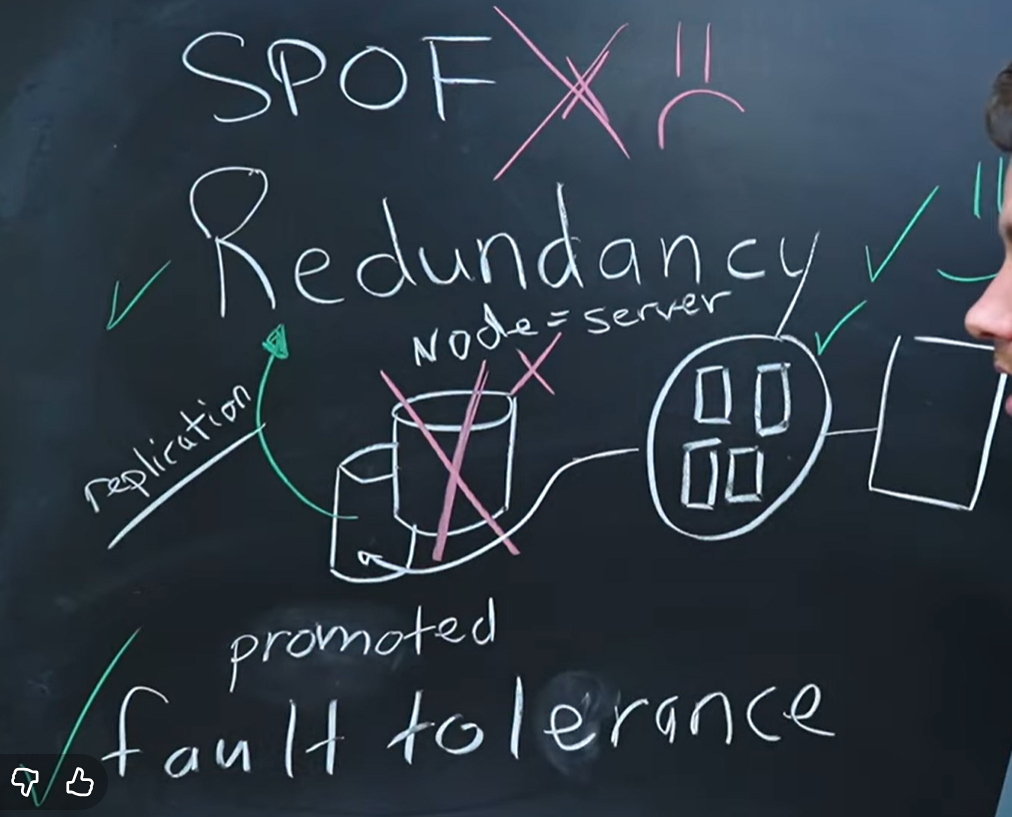 SPOF
Redundancy
Node = server
replication
promoted
fault tolerance